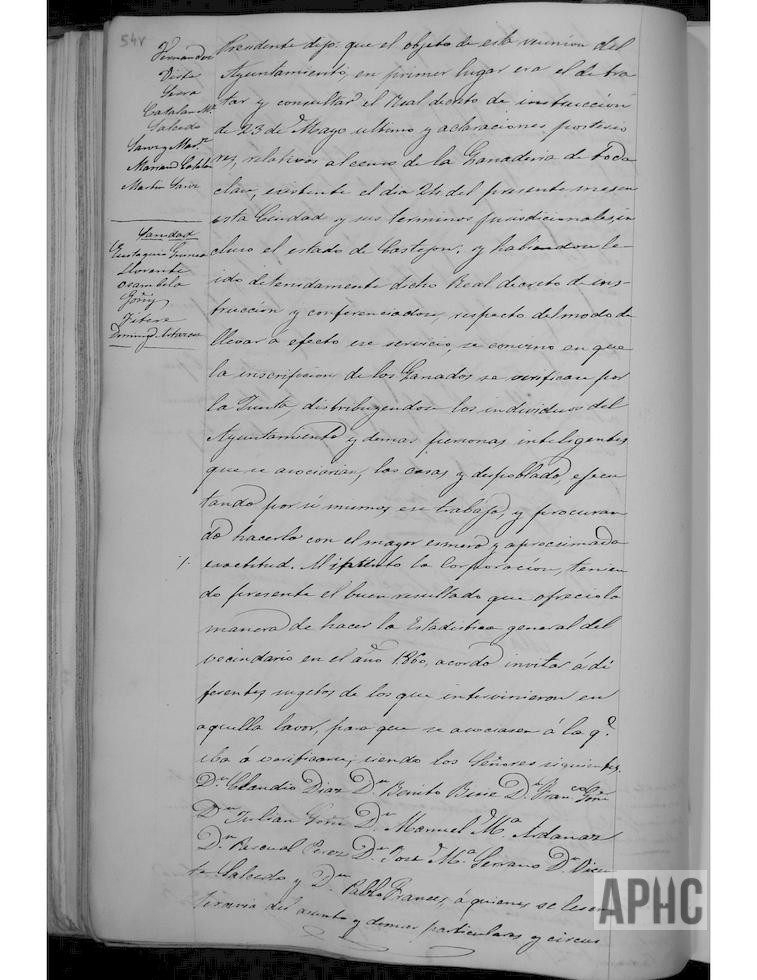 54v
Hernandez
Serra
Catalan Mo.
Salcedo
Sanz y Mar.
Mariano Catalan
Martin Sanz
Sanidad
Eustaquio
Llorente
Ocambela
Goñi
Fitero
Presidente dijo: que el objeto de esta reunion del
Ayuntamiento, en primer lugar era el de tra
tar y consultar el Real decreto de instruccion
de 23 de Mayo ultimo y aclaraciones posterio
res, relativos al censo de la Ganaderia de toda
clase, existente el dia 24 del presente mes en
esta Ciudad y sus terminos jurisdicionales, in
cluso el estado de Castejon: y habiendose le
ido detenidamente dicho Real decreto de ins-
truccion y conferenciadose respecto del modo de
llevar a efecto ese servicio, se convino en que
la inscripcion de los Ganados se verificase por
la Junta, distribuyendose los individuos del
Ayuntamiento y demas personas inteligentes
que se asociarian, las casas y despoblado, ejecu
tando por si mismos ese trabajo, y procuran
do hacerlo con el mayor esmero y aprocsimada
exactitud. Al intento la Corporacion, tenien
do presente el buen resultado que ofrecio la
manera de hacer la Estadistica general del
vecindario en el año 1860, acordó invitar á di
ferentes sugetos de los que intervinieron en
aquella lavor, para que se asociasen á la q.e
iba á verificarse; siendo los Señores siguientes.
D.n Claudio Diaz D.n Benito D.n Fran.co Goñi
D.n Julian Goñi D.n Manuel M.a Ardanaz
D.n Pascual Perez D.n José M.a Serrano D.n Vicen
te Salcedo y D.n Pablo Frances, á quienes se les en
teraria del asunto y demas particulares y circus
APHC